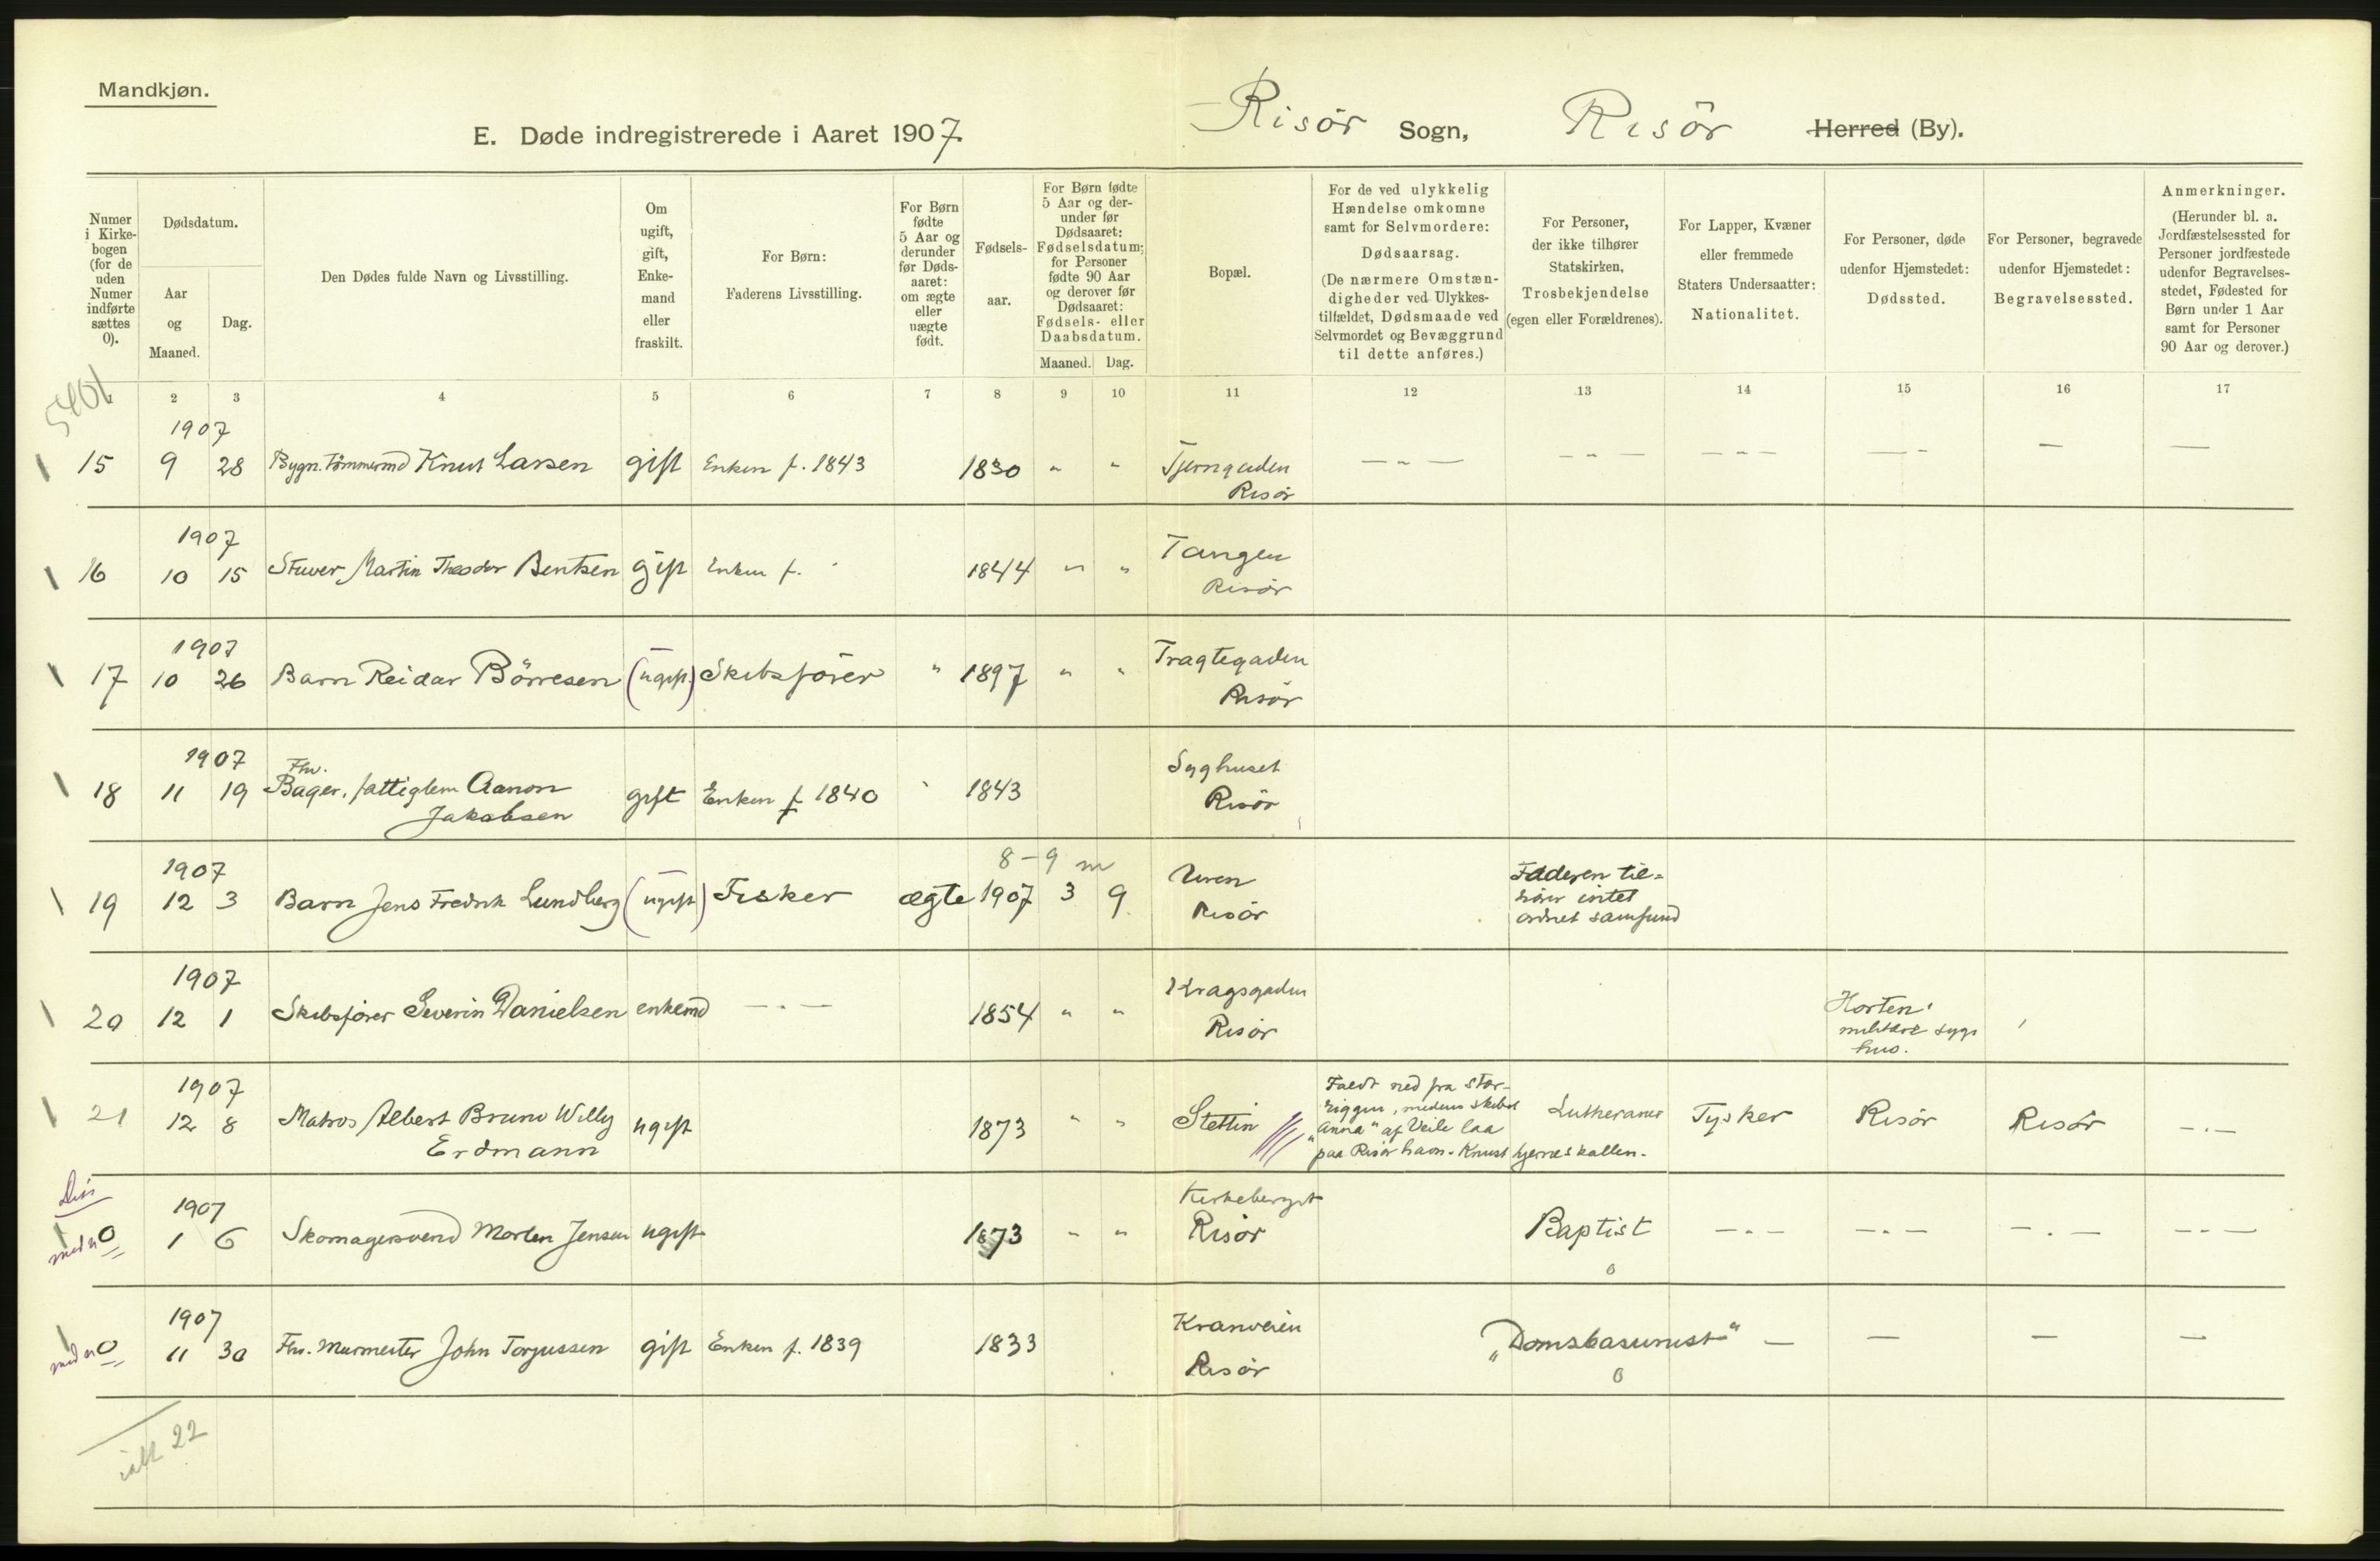 Mandkjøn.
E. Døde indregistrerede i Aaret 1907.
Risör Sogn, Risör Herred (By).
Numer i Kirkebogen (for de uden Numer indførte sættes 0).
Dødsdatum.
Aar og Maaned.
Dag.
Den Dødes fulde Navn og Livsstilling.
Om ugift, gift, Enkemand eller fraskilt.
For Børn: Faderens Livsstilling.
For Børn fødte 5 Aar og derunder før Dødsaaret: om ægte eller uægte født.
Fødselsaar.
For Børn fødte 5 Aar og derunder før Dødsaaret: Fødselsdatum; for Personer fødte 90 Aar og derover før Dødsaaret: Fødsels- eller Daabsdatum.
Maaned. Dag.
Bopæl.
For de ved ulykkelig Hændelse omkomne samt for Selvmordere: Dødsaarsag. (De nærmere Omstændigheder ved Ulykkestilfældet, Dødsmaade ved Selvmordet og Bevæggrund til dette anføres.)
For Personer, der ikke tilhører Statskirken, Trosbekjendelse (egen eller Forældrenes).
For Lapper, Kvæner eller fremmede Staters Undersaatter: Nationalitet.
For Personer, døde udenfor Hjemstedet: Dødssted.
For Personer, begravede udenfor Hjemstedet: Begravelsessted.
Anmerkninger. (Herunder bl. a. Jordfæstelsessted for Personer jordfæstede udenfor Begravelsesstedet, Fødested for Børn under 1 Aar samt for Personer 90 Aar og derover.)
2 3 4 5 6 7 8 9 10 11 12 13 14 15 16 17
1907
15 9 28 Bygn. Tömmermd Knut Larsen gift Enken f. 1843 1830 " " Tjerngaden
Risör
1907
16 10 15 Stuver Martin Theodor Bentsen gift Enken f. 1844 " " Tangen
Risör
1907
17 10 26 Barn Reidar Börresen (ugift) Skibsförer " 1897 " " Tragtegaden
Risör
1907
18 11 19 Fhv. Bager, fattiglem Aanon gift Enken f 1840 " 1843 Syghuset
Jakobsen Risör
1907 8-9 m
19 12 3 Barn Jens Fredrik Lundberg (ugift) Fisker ægte 1907 3 9 Uren
Risör
Faderen til=
hörer intet
ordnet samfund
1907
20 12 1 Skibsförer Severin Danielsen enkemd - " - 1854 " " Kragsgaden
Risör
Horten
militære syge
hus.
1907
21 12 8 Matros Albert Bruno Willy ugift 1873 " " Stettin
Erdmann
Faldt ned fra stor-
riggen, medens skibet
"Anna" af Veile laa
paa Risör havn. Knust hjerneskallen.
Lutheraner Tysker Risör Risör - " -
1907
0 1 6 Skomagersvend Morten Jensen ugift 1873 " " Kirkeberget
Risör
Baptist - " - - " - - " - - " -
0
1907
0 11 30 Fhv. Murmester John Torjussen gift Enken f. 1839 1833 Kranveien
Risör
"Domsbasunist" — — — —
0
ialt 22